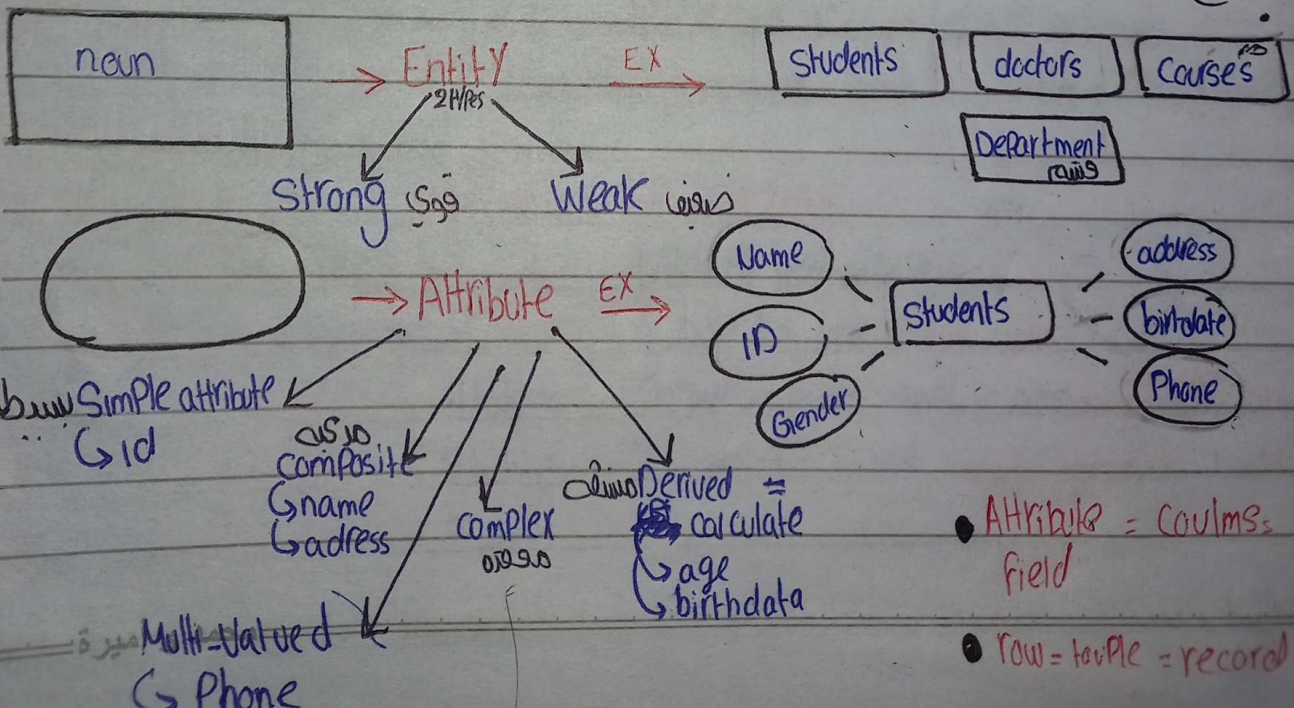 noun
Entity EX Students doctors Courses
2 types
Department
قسم
Strong قوي Weak ضعيف
Attribute EX
Name
ID
Gender
Students
address
birtdate
Phone
بسيط Simple attribute
id
مركبه
composite
name
adress
complex
معقده
مشتقه Derived =
calculate
age
birthdata
Multi-valued
Phone
Attribute = Coulms =
field
row = touple = record